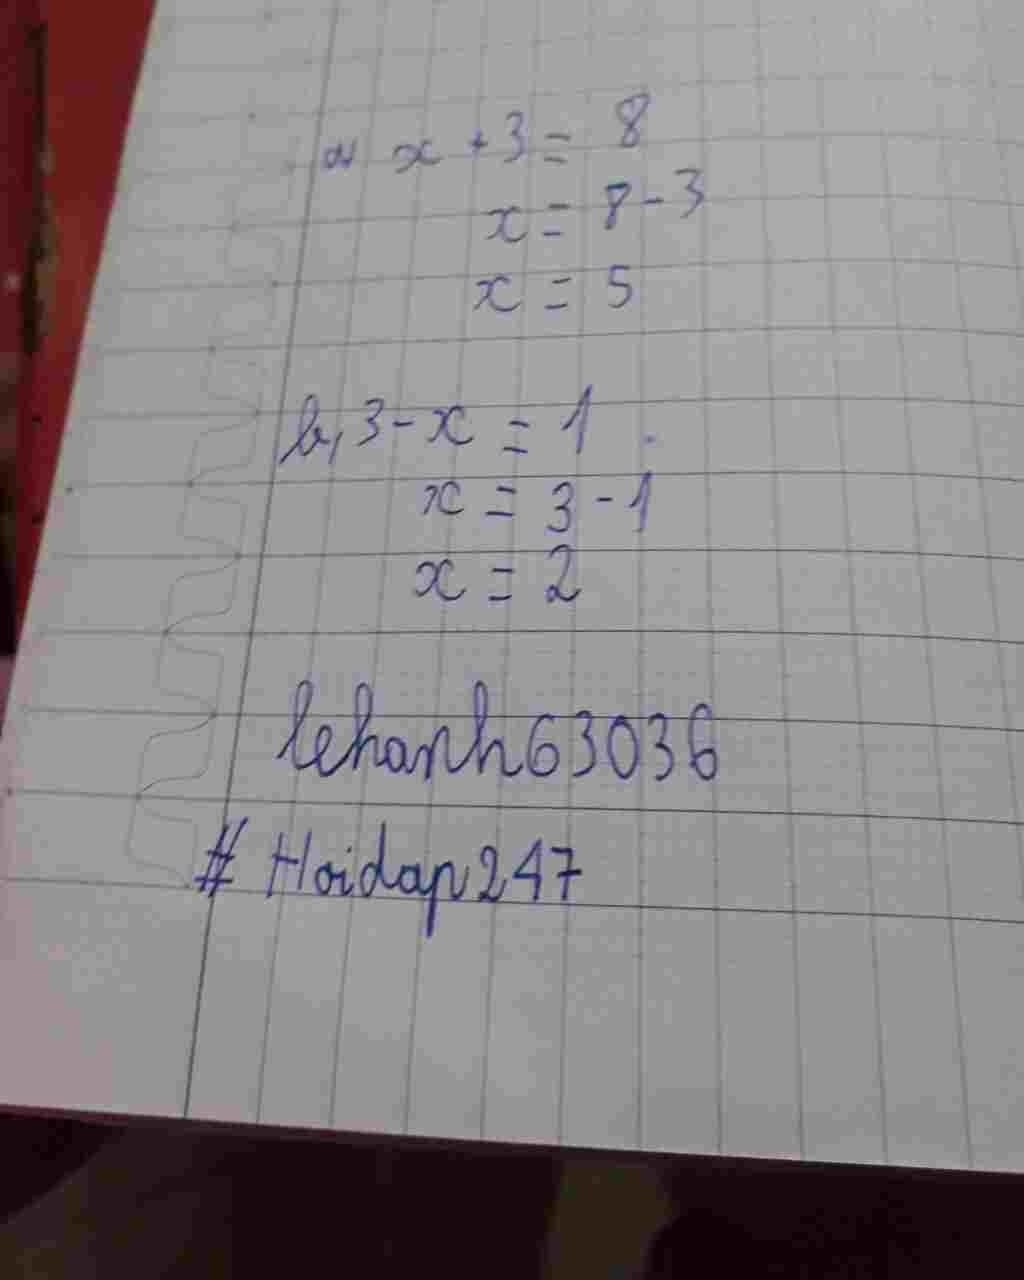 a, x + 3 = 8
x = 8 - 3
x = 5
b, 3 - x = 1
x = 3 - 1
x = 2
lehanh63036
# Hoidap247